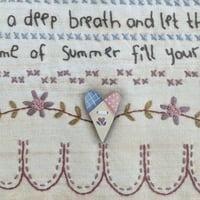 a deep breath and let th
me of Summer fill your